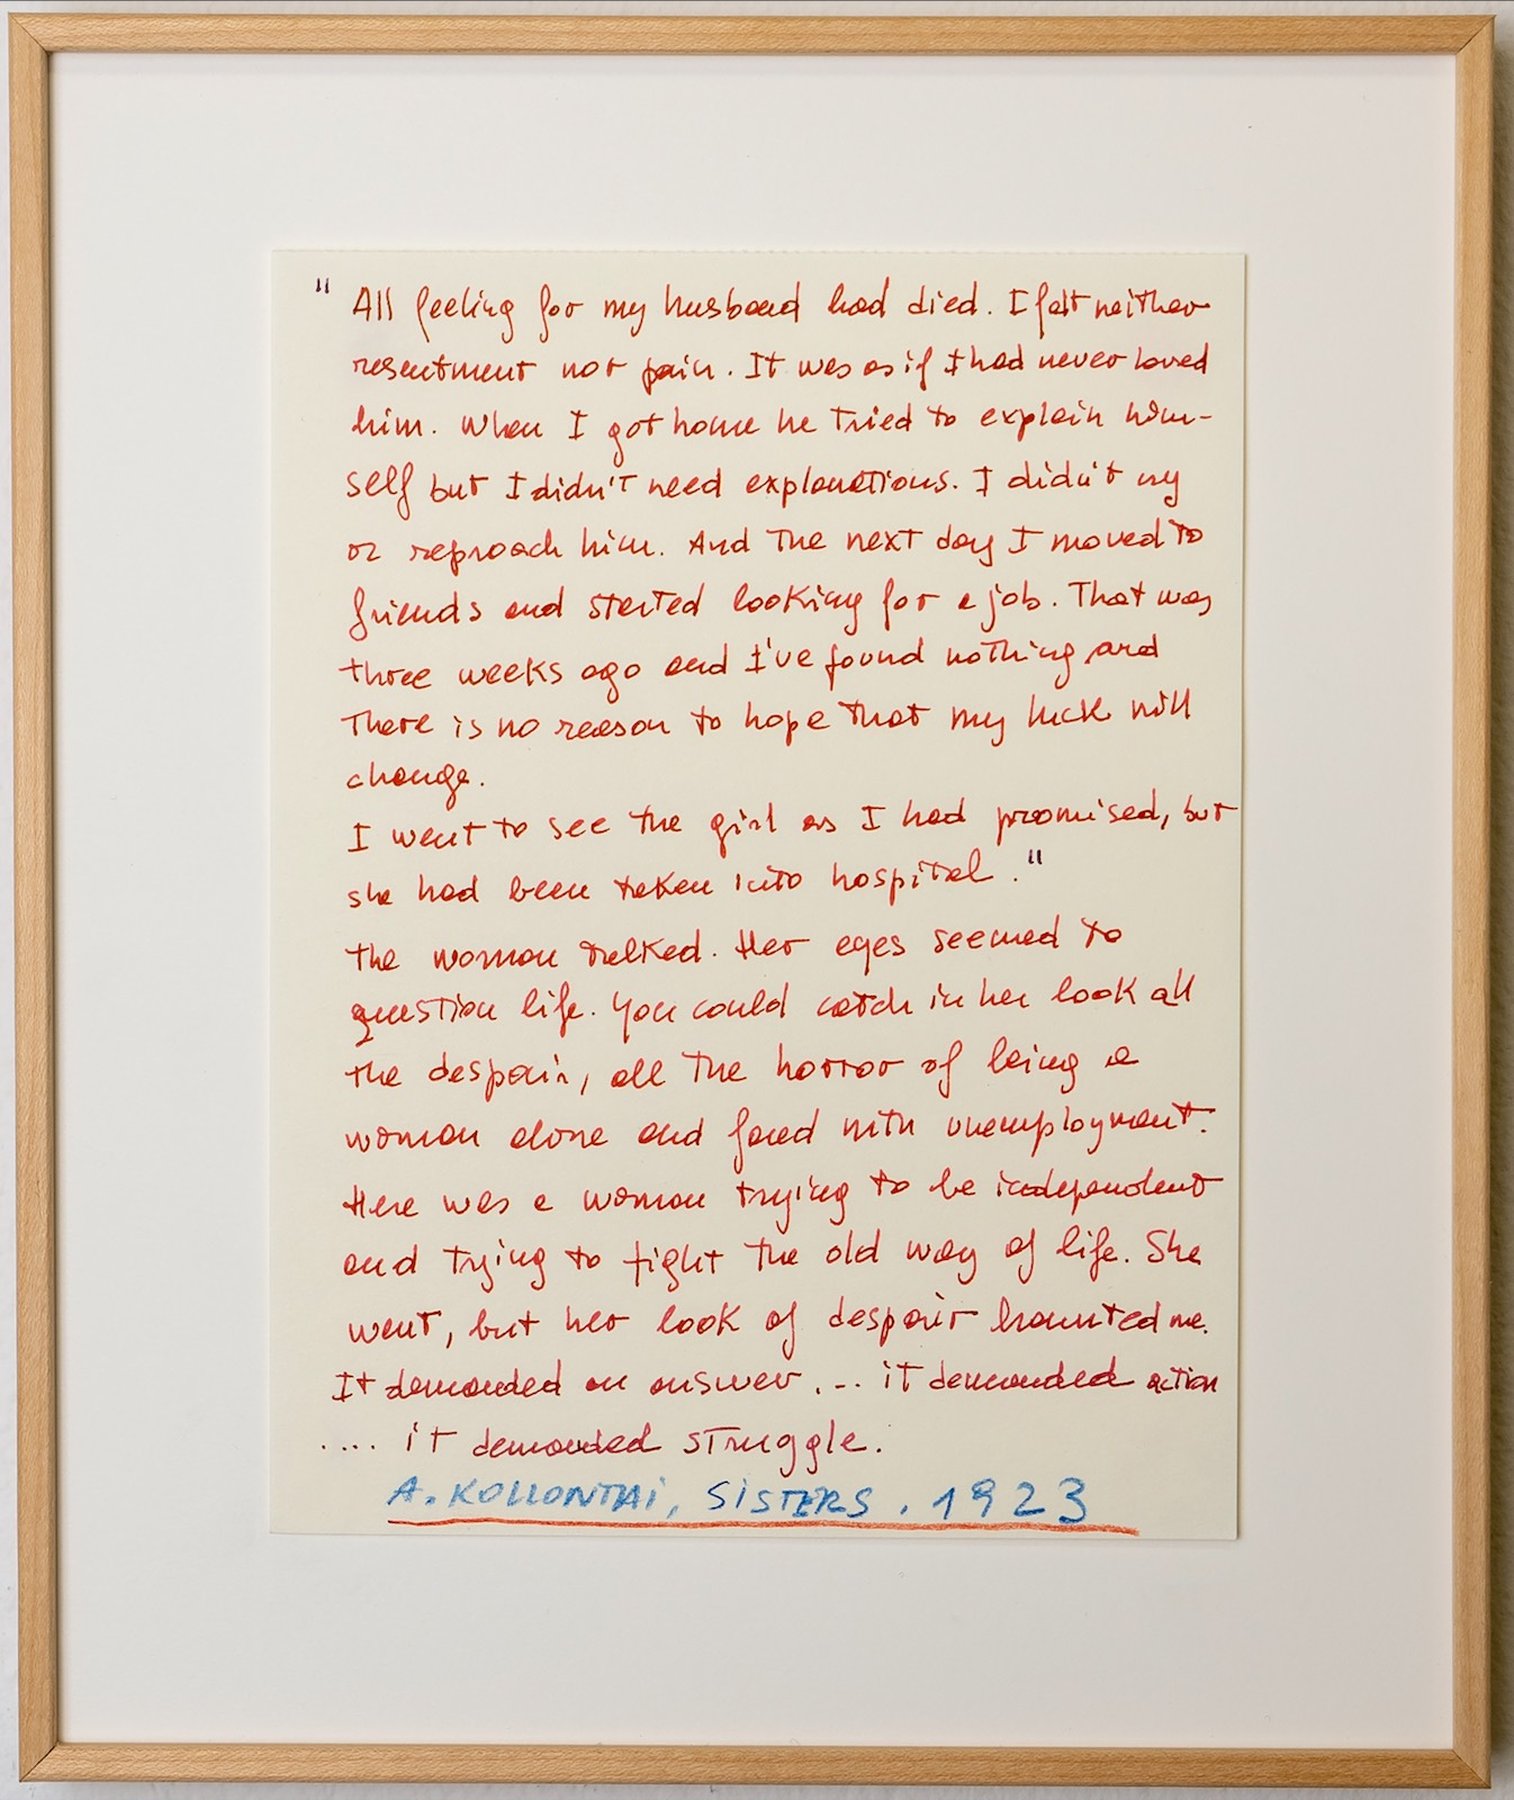 " All feeling for my husband had died. I felt neither
resentment nor pain. It was as if I had never loved
him. When I got home he tried to explain him-
self but I didn't need explanations. I didn't cry
or reproach him. And the next day I moved to
friends and started looking for a job. That was
three weeks ago and I've found nothing and
there is no reason to hope that my luck will
change.
I went to see the girl as I had promised, but
she had been taken into hospital."
the woman talked. Her eyes seemed to
question life. You could catch in her look all
the despair, all the horror of being a
woman alone and faced with unemployment.
Here was a woman trying to be independent
and trying to fight the old way of life. She
went, but her look of despair haunted me.
It demanded an answer ... it demanded action
.... it demanded struggle.
A. KOLLONTAI, SISTERS. 1923